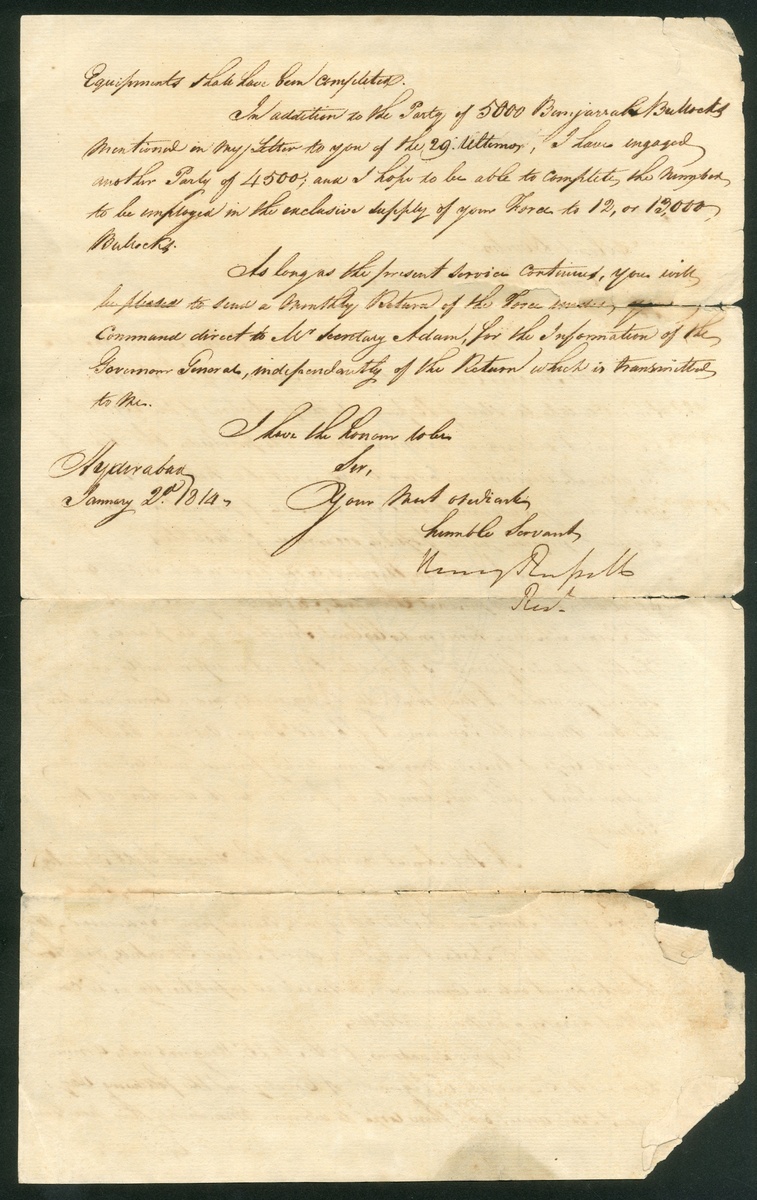 Equipments shall have been completed.
In addition to the Party of 5000 Bunjarrah Bullocks
mentioned in my Letter to you of the 29. Ultimo, I have engaged
another Party of 4500; and I hope to be able to complete the number
to be employed in the exclusive supply of your Force to 12, or 13,000
Bullocks.
As long as the present service continues, you will
be pleased to send a Monthly Return of the Force under your
Command direct to Mr Secretary Adam, for the Information of the
Governour General, independantly of the Return which is transmitted
to me.
I have the honour to be
Sir,
Hyderabad
January 2d. 1814.
Your Most obedient
humble Servant
Henry Russell
Rest.